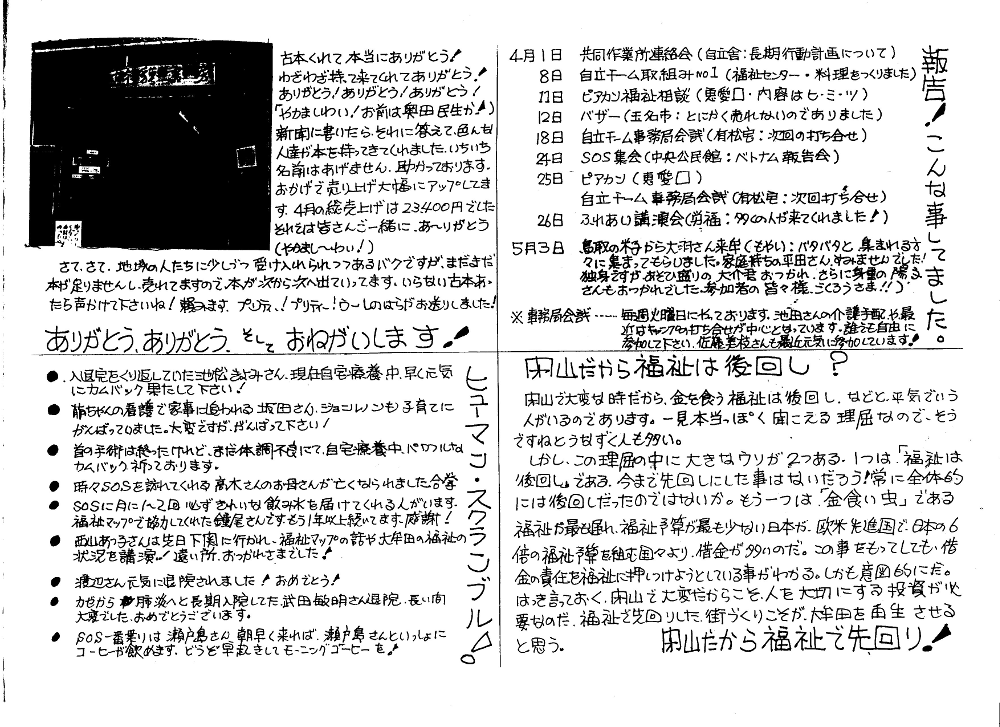 古本くれて本当にありがとう!
わざわざ持って来てくれてありがとう!
ありがとう!ありがとう!ありがとう!
「やかましいわい!お前は奥田民生か!」
新聞に書いたら、それに答えて、色んな
人達が本を持ってきてくれました。いちいち
名前はあげません、助かっております。
おかげで売り上げ大幅にアップしてま
す。4月の総売上げは23400円でした
それでは皆さんご一緒に、あ〜りがとう
(やかまし〜わい!)
さて、さて、地域の人たちに少しづつ受け入れられつつあるバクですが、まだまだ
本が足りませんし、売れてますので、本が次から次へ出ていってます。いらない古本あっ
たら声かけて下さいね!頼みます、プリティ、!プリティー!ウーLのはらがお送りしました!
ありがとう、ありがとう、そして おねがいします!
報告!こんな事してました。
4月1日 共同作業所連絡会(自立舎:長期行動計画について)
8日 自立チーム取組みno1(福祉センター・料理をつくりました)
11日 ピアカン福祉相談(恵愛口・内容はヒ・ミ・ツ)
12日 バザー(玉名市:とにかく売れないのでありました)
18日 自立チーム事務局会議(有松宅:次回の打ち合せ)
24日 SOS集会(中央公民館:ベトナム報告会)
25日 ピアカン(恵愛口)
自立チーム事務局会議(有松宅:次回打ち合せ)
26日 ふれあい講演会(労福:99の人が来てくれました!)
5月3日 鳥取の米子から大羽さん来牟(そやい:バタバタと、集まれる方
々に集まってもらいました。家庭持ちの平田さん、すみませんでした!
独身ですがあそび盛りの大介君おつかれ、さらに身重の陽子
さんもおつかれでした。参加者の皆々様、ごくろうさま!!)
※事務局会議……毎週火曜日にやっております。池田さんの介護手配や最
近はキャンプの打ち合せが中心となっています。誰でも自由に
参加して下さい。佐藤美枝さんも最近元気に参加しています!
ヒューマン・スクランブル!
● 入退院をくり返していた池松きよみさん、現在自宅療養中、早く元気
にカムバック果たして下さい!
● 赤ちゃんの看護で家事に追われる坂田さん、ジョンレノンも子育てに
がんばっていました。大変ですが、がんばって下さい!
● 首の手術は終ったけれど、まだ体調不良にて、自宅療養中、パワフルな
カムバック祈っております。
● 時々SOSを訪れてくれる高木さんのお母さんが亡くなられました。合掌
● SOSに月に1〜2回必ずきれいな飲み水を届けてくれる人がいます。
福祉マップで協力してくれた鐘尾さんです。もう1年以上続いてます、感謝!
● 西山あつ子さんは先日下関に行かれ、福祉マップの話や大牟田の福祉の
状況を講演!遠い所、おつかれさまでした!
● 渡辺さん元気に退院されました!おめでとう!
● かぜから肺炎へと長期入院してた武田敏明さん退院、長い間
大変でした、おめでとうございます。
● SOS一番乗りは瀬戸島さん、朝早く来れば、瀬戸島さんといっしょに
コーヒーが飲めます、どうぞ早起きしてモーニングコーヒーを!
閉山だから福祉は後回し?
閉山で大変な時だから、金を食う福祉は後回し、などと、平気でいう
人がいるのであります。一見本当っぽく聞こえる理屈なので、そう
ですねとうなずく人も多い。
しかし、この理屈の中に大きなウソが2つある。1つは、「福祉は
後回し」である、今まで先回しにした事はないだろう!常に全体的
には後回しだったのではないか。もう一つは「金食い虫」である
福祉が最も遅れ、福祉予算が最も少ない日本が、欧米先進国で、日本の6
倍の福祉予算を組む国々より、借金が多いのだ。この事をもってしても、借
金の責任を福祉に押しつけようとしている事がわかる。しかも意図的にだ。
はっきり言っておく、閉山で大変だからこそ、人を大切にする投資が必
要なのだ、福祉で先回りした、街づくりこそが、大牟田を再生させる
と思う。 閉山だから福祉で先回り!